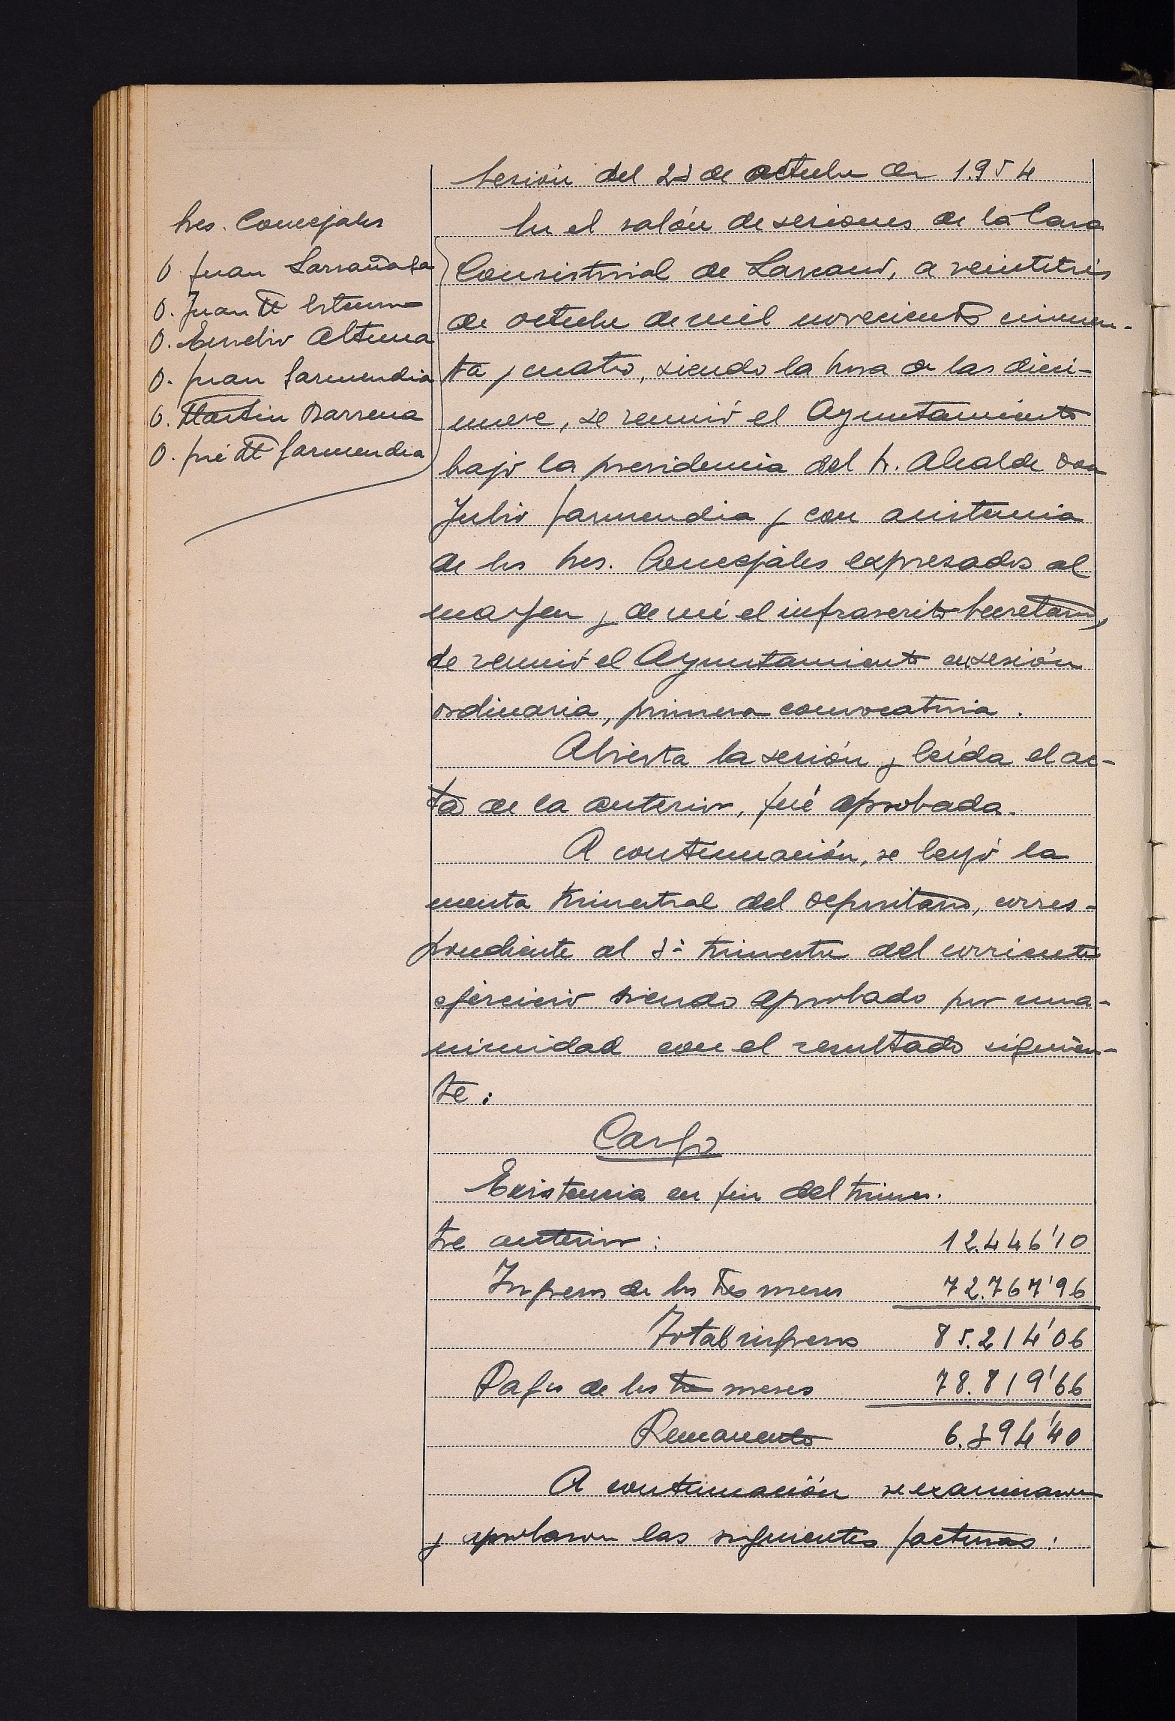 Sesión del 23 de octubre de 1.954
Sres. Concejales
D. Juan Larrañaga
D. Juan Mª Estensoro
D. Eusebio Altuna
D. Juan Garmendia
D. Martin Barrena
D. José Mª Garmendia
En el salón de sesiones de la Casa
Consistorial de Lazcano, a veintitrés
de octubre de mil novecientos cincuen-
ta y cuatro, siendo la hora de las dieci-
nueve, se reunió el Ayuntamiento
bajo la presidencia del Sr. Alcalde don
Julio Garmendia y con asistencia
de los Sres. Concejales expresados al
margen y de mi el infrascrito Secretario,
se reunió el Ayuntamiento en sesión
ordinaria, primera convocatoria.
Abierta la sesión y leída el ac-
ta de la anterior, fué aprobada.
A continuación, se leyó la
cuenta trimestral del Depositario, corres-
pondiente al 3º trimestre del corriente
ejercicio siendo aprobado por una-
nimidad con el resultado siguien-
te:
Cargo
Existencia en fin del trimes-
tre anterior: 12.446'10
Ingresos de los tres meses 72.767'96
Total ingresos 85.214'06
Pagos de los tres meses 78.819'66
Remanente 6.394'40
A continuación se examinaron
y aprobaron las siguientes facturas: